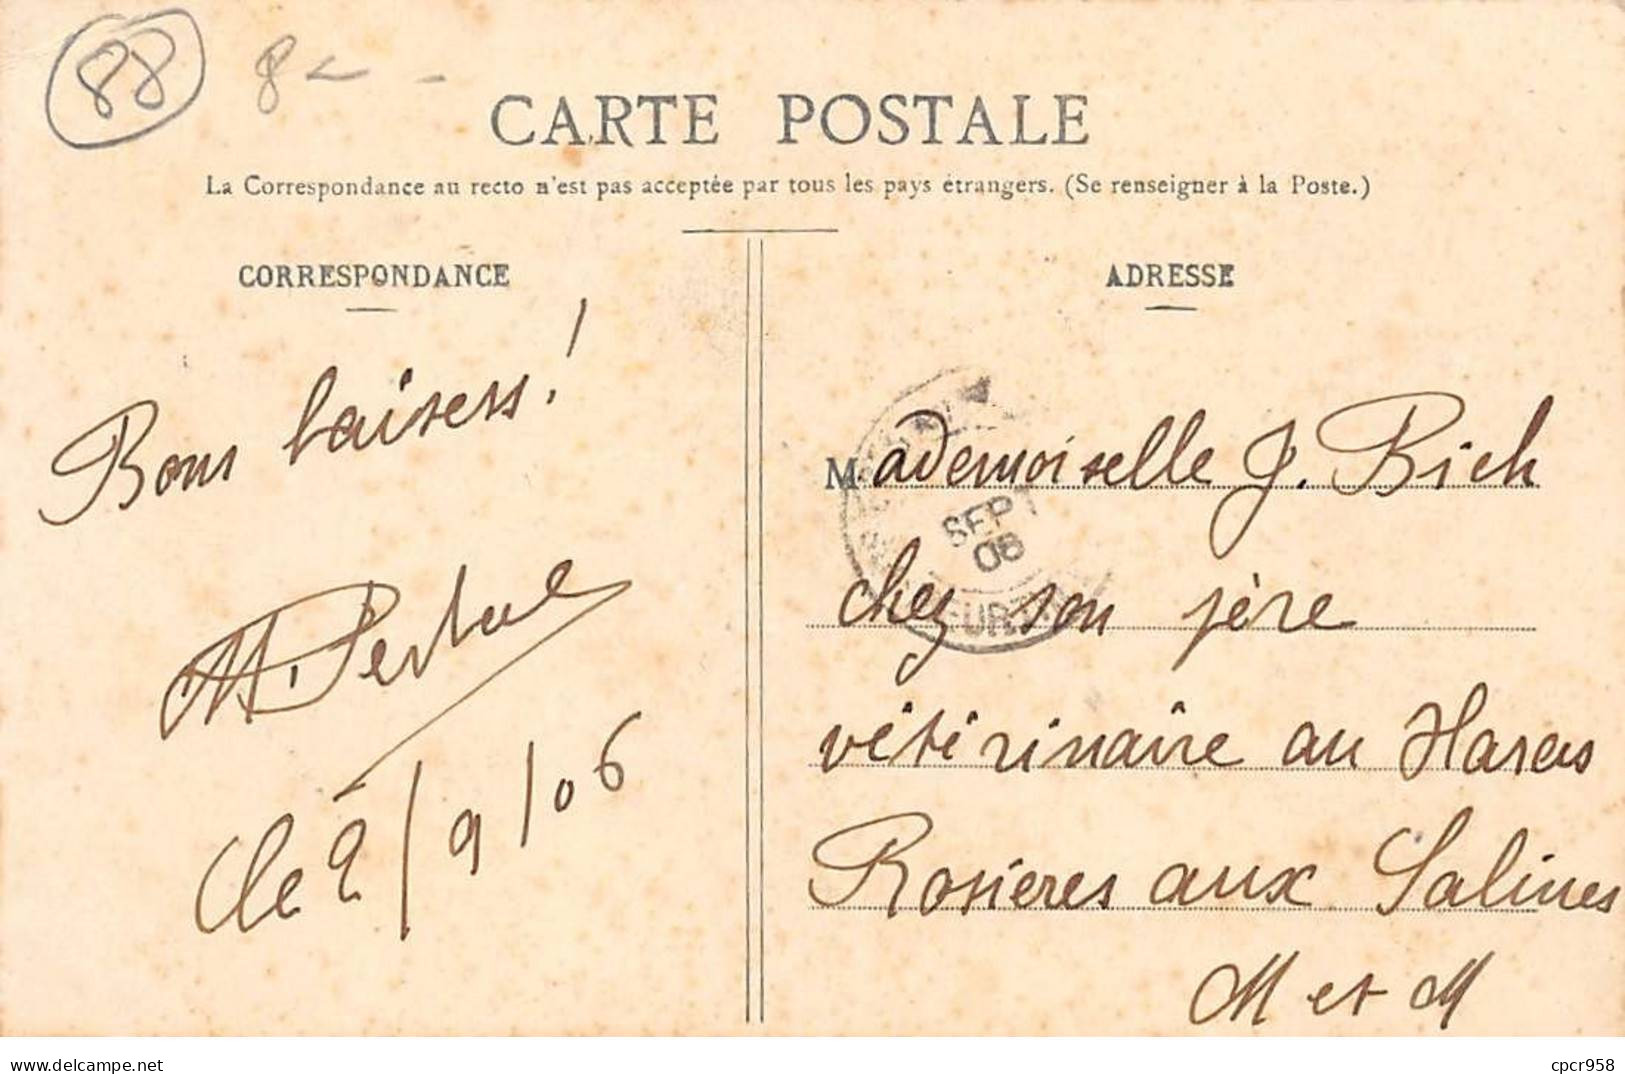 88 8
CARTE POSTALE
La Correspondance au recto n'est pas acceptée par tous les pays étrangers. (Se renseigner à la Poste.)
CORRESPONDANCE
Bons baisers!
le 2/9/06
ADRESSE
Mademoiselle J. Bich
chez son père
vétérinaire au Haras
Rosières aux Salines
M et M
SEPT
06
delcampe.net
cpcr958